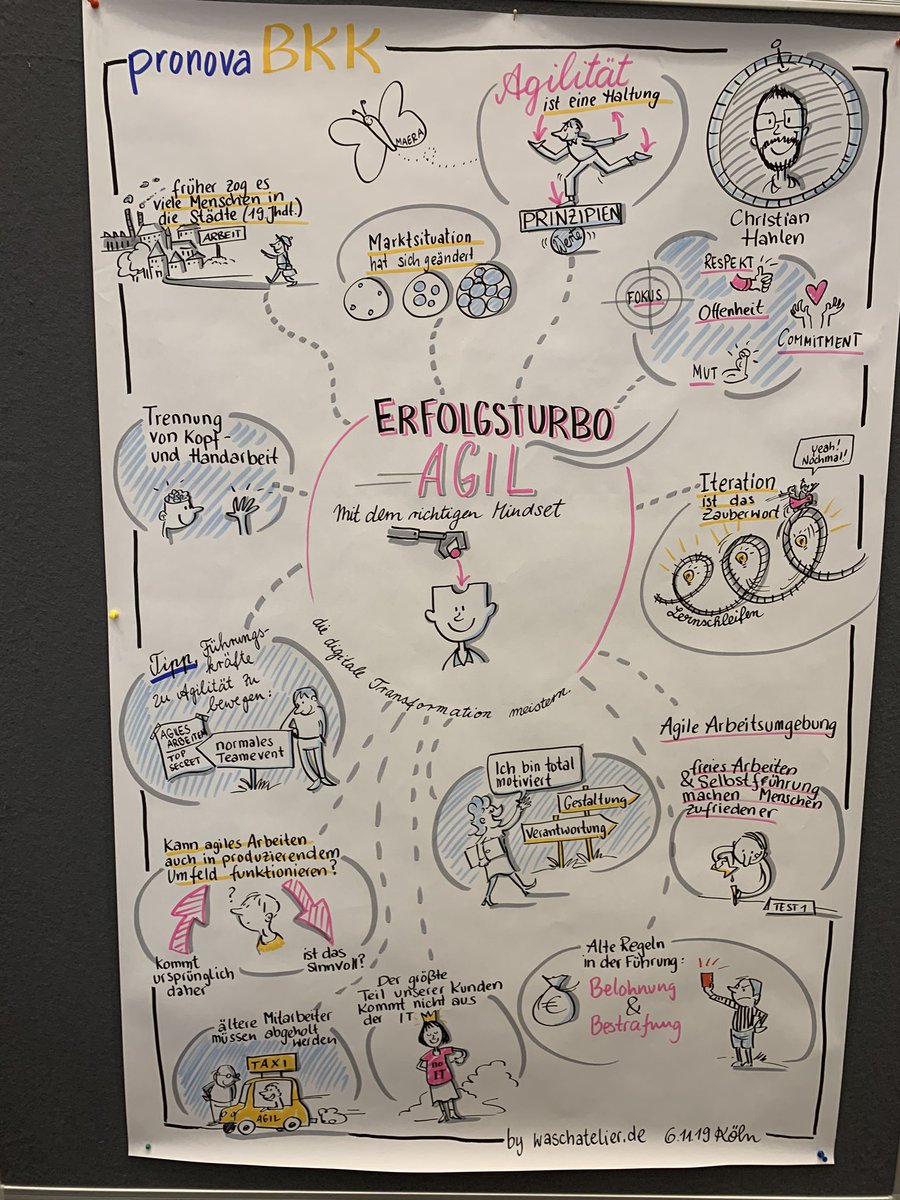 pronova BKK
Agilität
ist eine Haltung
MAERA
PRINZIPIEN
Werte
Christian
Hahlen
früher zog es
viele Menschen in
die Städte (19. Jhdt.)
ARBEIT
Marktsituation
hat sich geändert
RESPEKT
FOKUS
Offenheit
COMMITMENT
MUT
ERFOLGSTURBO
AGIL
Mit dem richtigen Mindset
die digitale Transformation meistern
Trennung
von Kopf-
und Handarbeit
yeah!
Nochmal!
Iteration
ist das
Zauberwort
Lernschleifen
Tipp Führungs-
kräfte
zu Agilität zu
bewegen:
AGILES
ARBEITEN
TOP
SECRET
normales
Teamevent
Ich bin total
motiviert
Gestaltung
Verantwortung
Agile Arbeitsumgebung
freies Arbeiten
& Selbstführung
machen Menschen
zufriedener
TEST 1
Kann agiles Arbeiten
auch in produzierendem
Umfeld funktionieren?
?
Kommt
ursprünglich
daher
ist das
sinnvoll?
Alte Regeln
in der Führung:
€
Belohnung
&
Bestrafung
ältere Mitarbeiter
müssen abgeholt
werden
TAXI
AGIL
Der größte
Teil unserer Kunden
kommt nicht aus
der IT
no
IT
by waschatelier.de 6.11.19 Köln